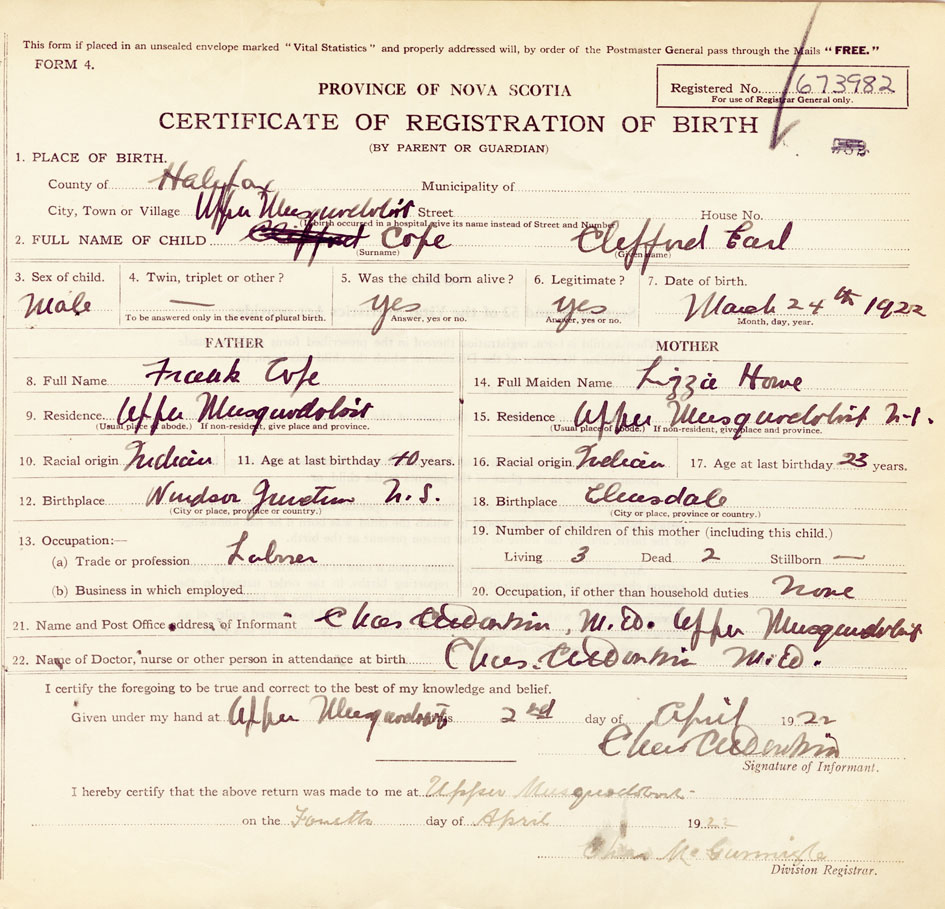 This form if placed in an unsealed envelope marked "Vital Statistics" and properly addressed will, by order of the Postmaster General pass through the Mails "FREE."
FORM 4.
PROVINCE OF NOVA SCOTIA
Registered No. 673982
For use of Registrar General only.
CERTIFICATE OF REGISTRATION OF BIRTH
(BY PARENT OR GUARDIAN)
1. PLACE OF BIRTH.
County of Halifax Municipality of
City, Town or Village Upper Musquodoboit Street House No.
(If birth occurred in a hospital give its name instead of Street and Number)
2. FULL NAME OF CHILD Cope Clifford Earl
(Surname) (Given name)
3. Sex of child. 4. Twin, triplet or other? 5. Was the child born alive? 6. Legitimate? 7. Date of birth.
Male — yes yes March 24th 1922
To be answered only in the event of plural birth. Answer, yes or no. Answer, yes or no. Month, day, year.
FATHER MOTHER
8. Full Name Frank Cope 14. Full Maiden Name Lizzie Howe
9. Residence Upper Musquodoboit 15. Residence Upper Musquodoboit N.S.
(Usual place of abode.) If non-resident, give place and province. (Usual place of abode.) If non-resident, give place and province.
10. Racial origin Indian 11. Age at last birthday 40 years. 16. Racial origin Indian 17. Age at last birthday 23 years.
12. Birthplace Windsor Junction N.S. 18. Birthplace Elmsdale
(City or place, province or country.) (City or place, province or country.)
13. Occupation:—
19. Number of children of this mother (including this child.)
(a) Trade or profession Laborer
Living 3 Dead 2 Stillborn —
(b) Business in which employed
20. Occupation, if other than household duties None
21. Name and Post Office address of Informant Chas Donkin, M.D. Upper Musquodoboit
22. Name of Doctor, nurse or other person in attendance at birth Chas. Donkin M.D.
I certify the foregoing to be true and correct to the best of my knowledge and belief.
Given under my hand at Upper Musquodoboit 2nd day of April 1922
Chas Donkin
Signature of Informant.
I hereby certify that the above return was made to me at Upper Musquodoboit
on the Fourth day of April 1922
Chas
Division Registrar.